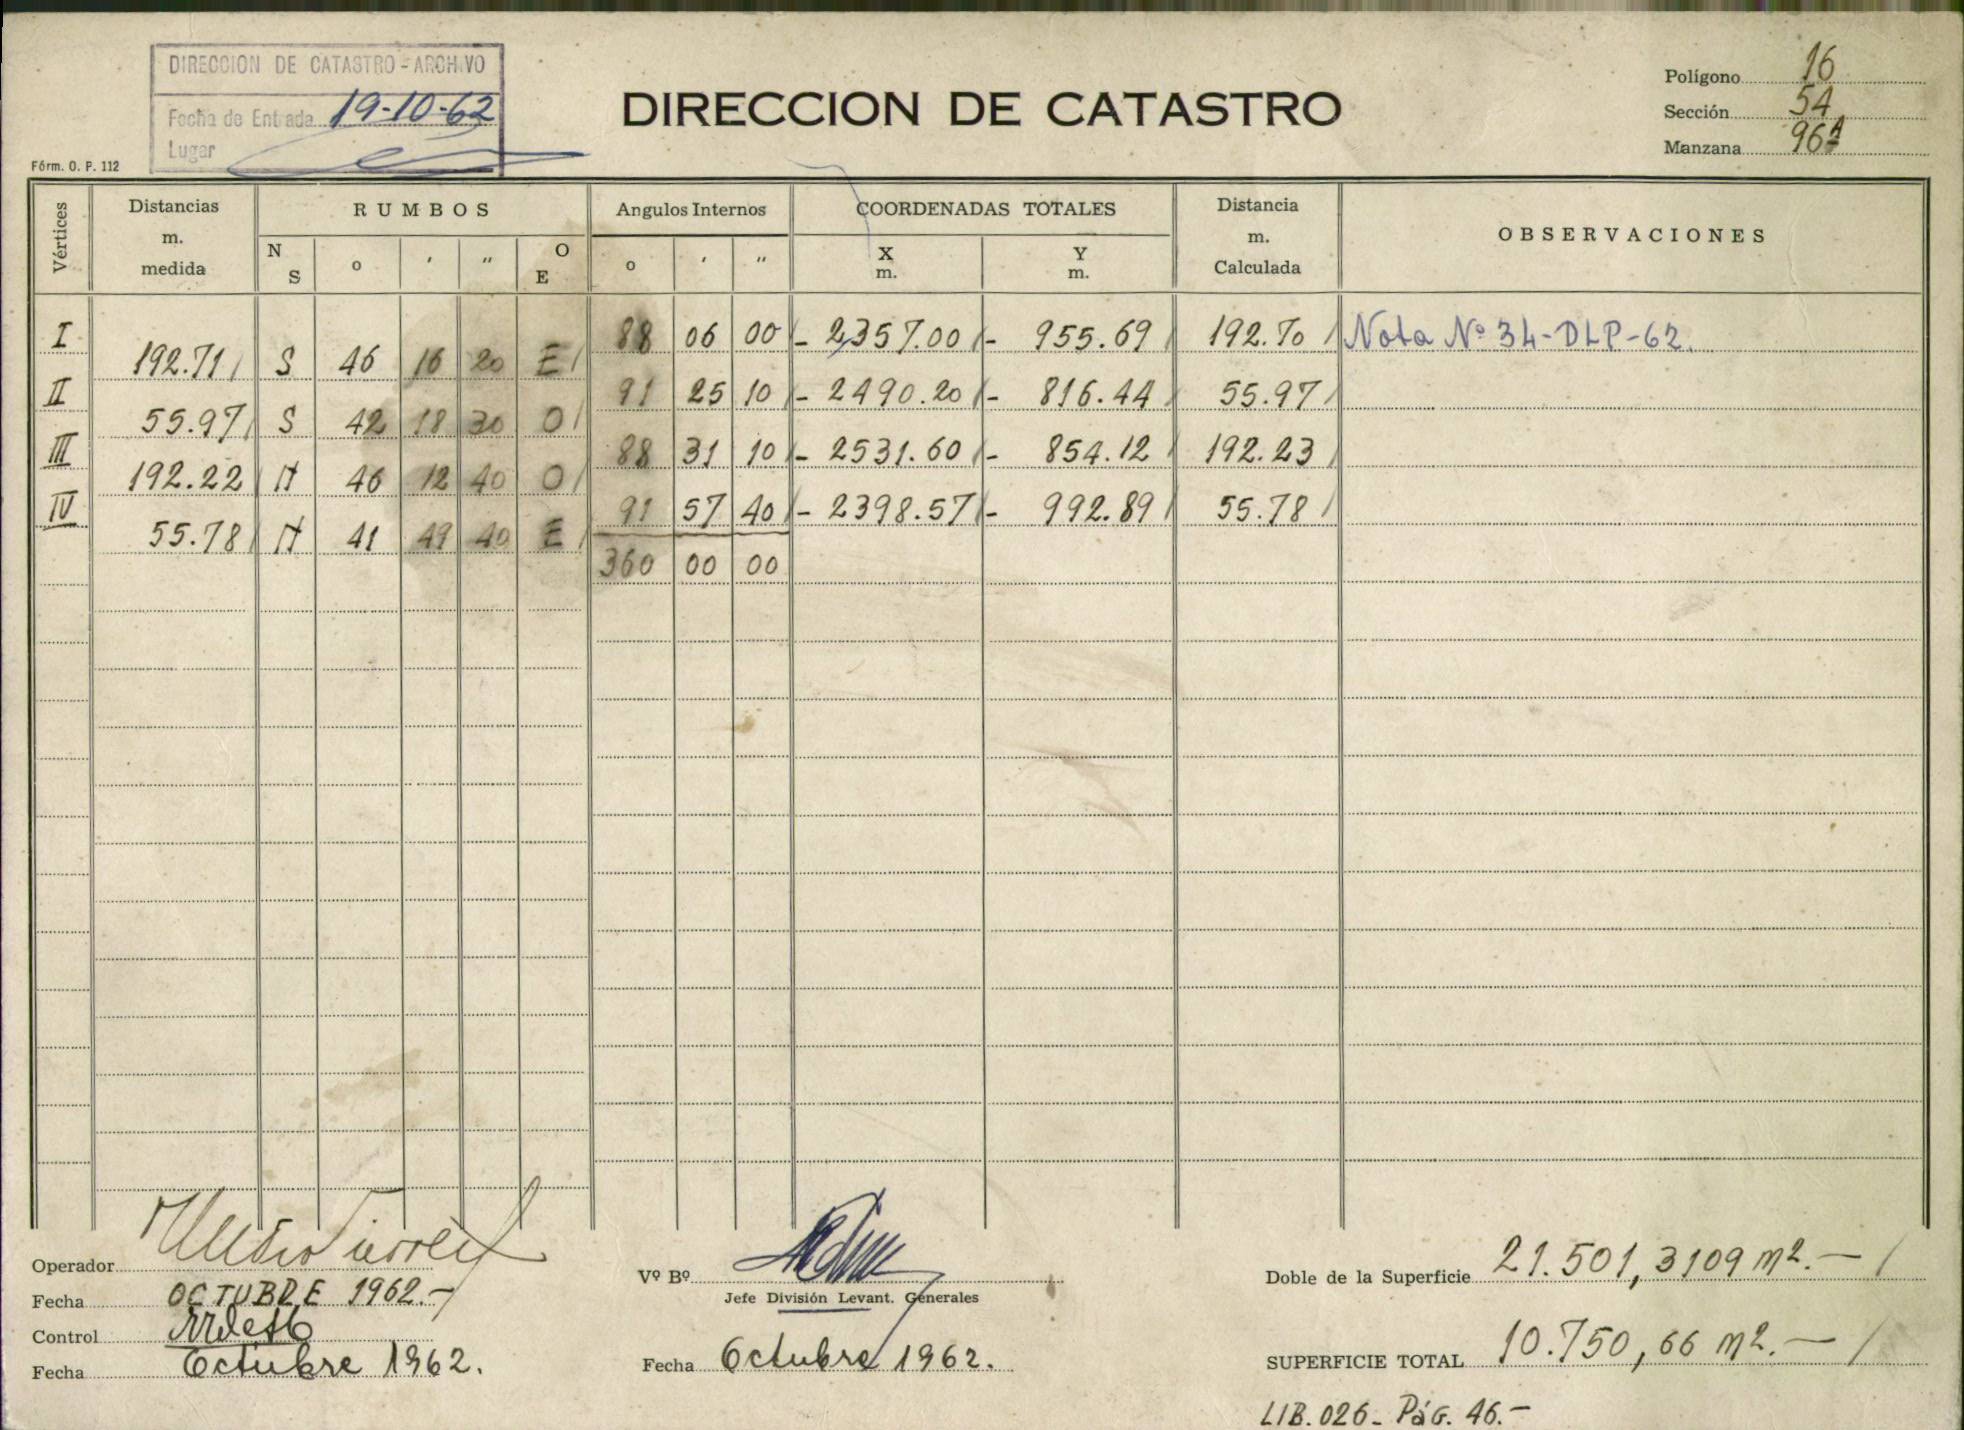 DIRECCION DE CATASTRO - ARCHIVO
Fecha de Entrada 19-10-62
Lugar
Fórm. O. P. 112
DIRECCION DE CATASTRO
Polígono 16
Sección 54
Manzana 96A
Vértices Distancias m. medida RUMBOS Angulos Internos COORDENADAS TOTALES Distancia m. Calculada OBSERVACIONES
N S o ' " O E o ' " X m. Y m.
I 88 06 00 - 2357.00 - 955.69 192.70 Nota Nº 34-DLP-62.
192.71 S 46 16 20 E
II 91 25 10 - 2490.20 - 816.44 55.97
55.97 S 42 18 30 O
III 88 31 10 - 2531.60 - 854.12 192.23
192.22 N 46 12 40 O
IV 91 57 40 - 2398.57 - 992.89 55.78
55.78 N 41 49 40 E
360 00 00
Operador
Fecha OCTUBRE 1962.-
Control
Fecha Octubre 1962.
Vº Bº
Jefe División Levant. Generales
Fecha Octubre 1962.
Doble de la Superficie 21.501,3109 m2.-
SUPERFICIE TOTAL 10.750,66 m2.-
LIB. 026- PáG. 46.-